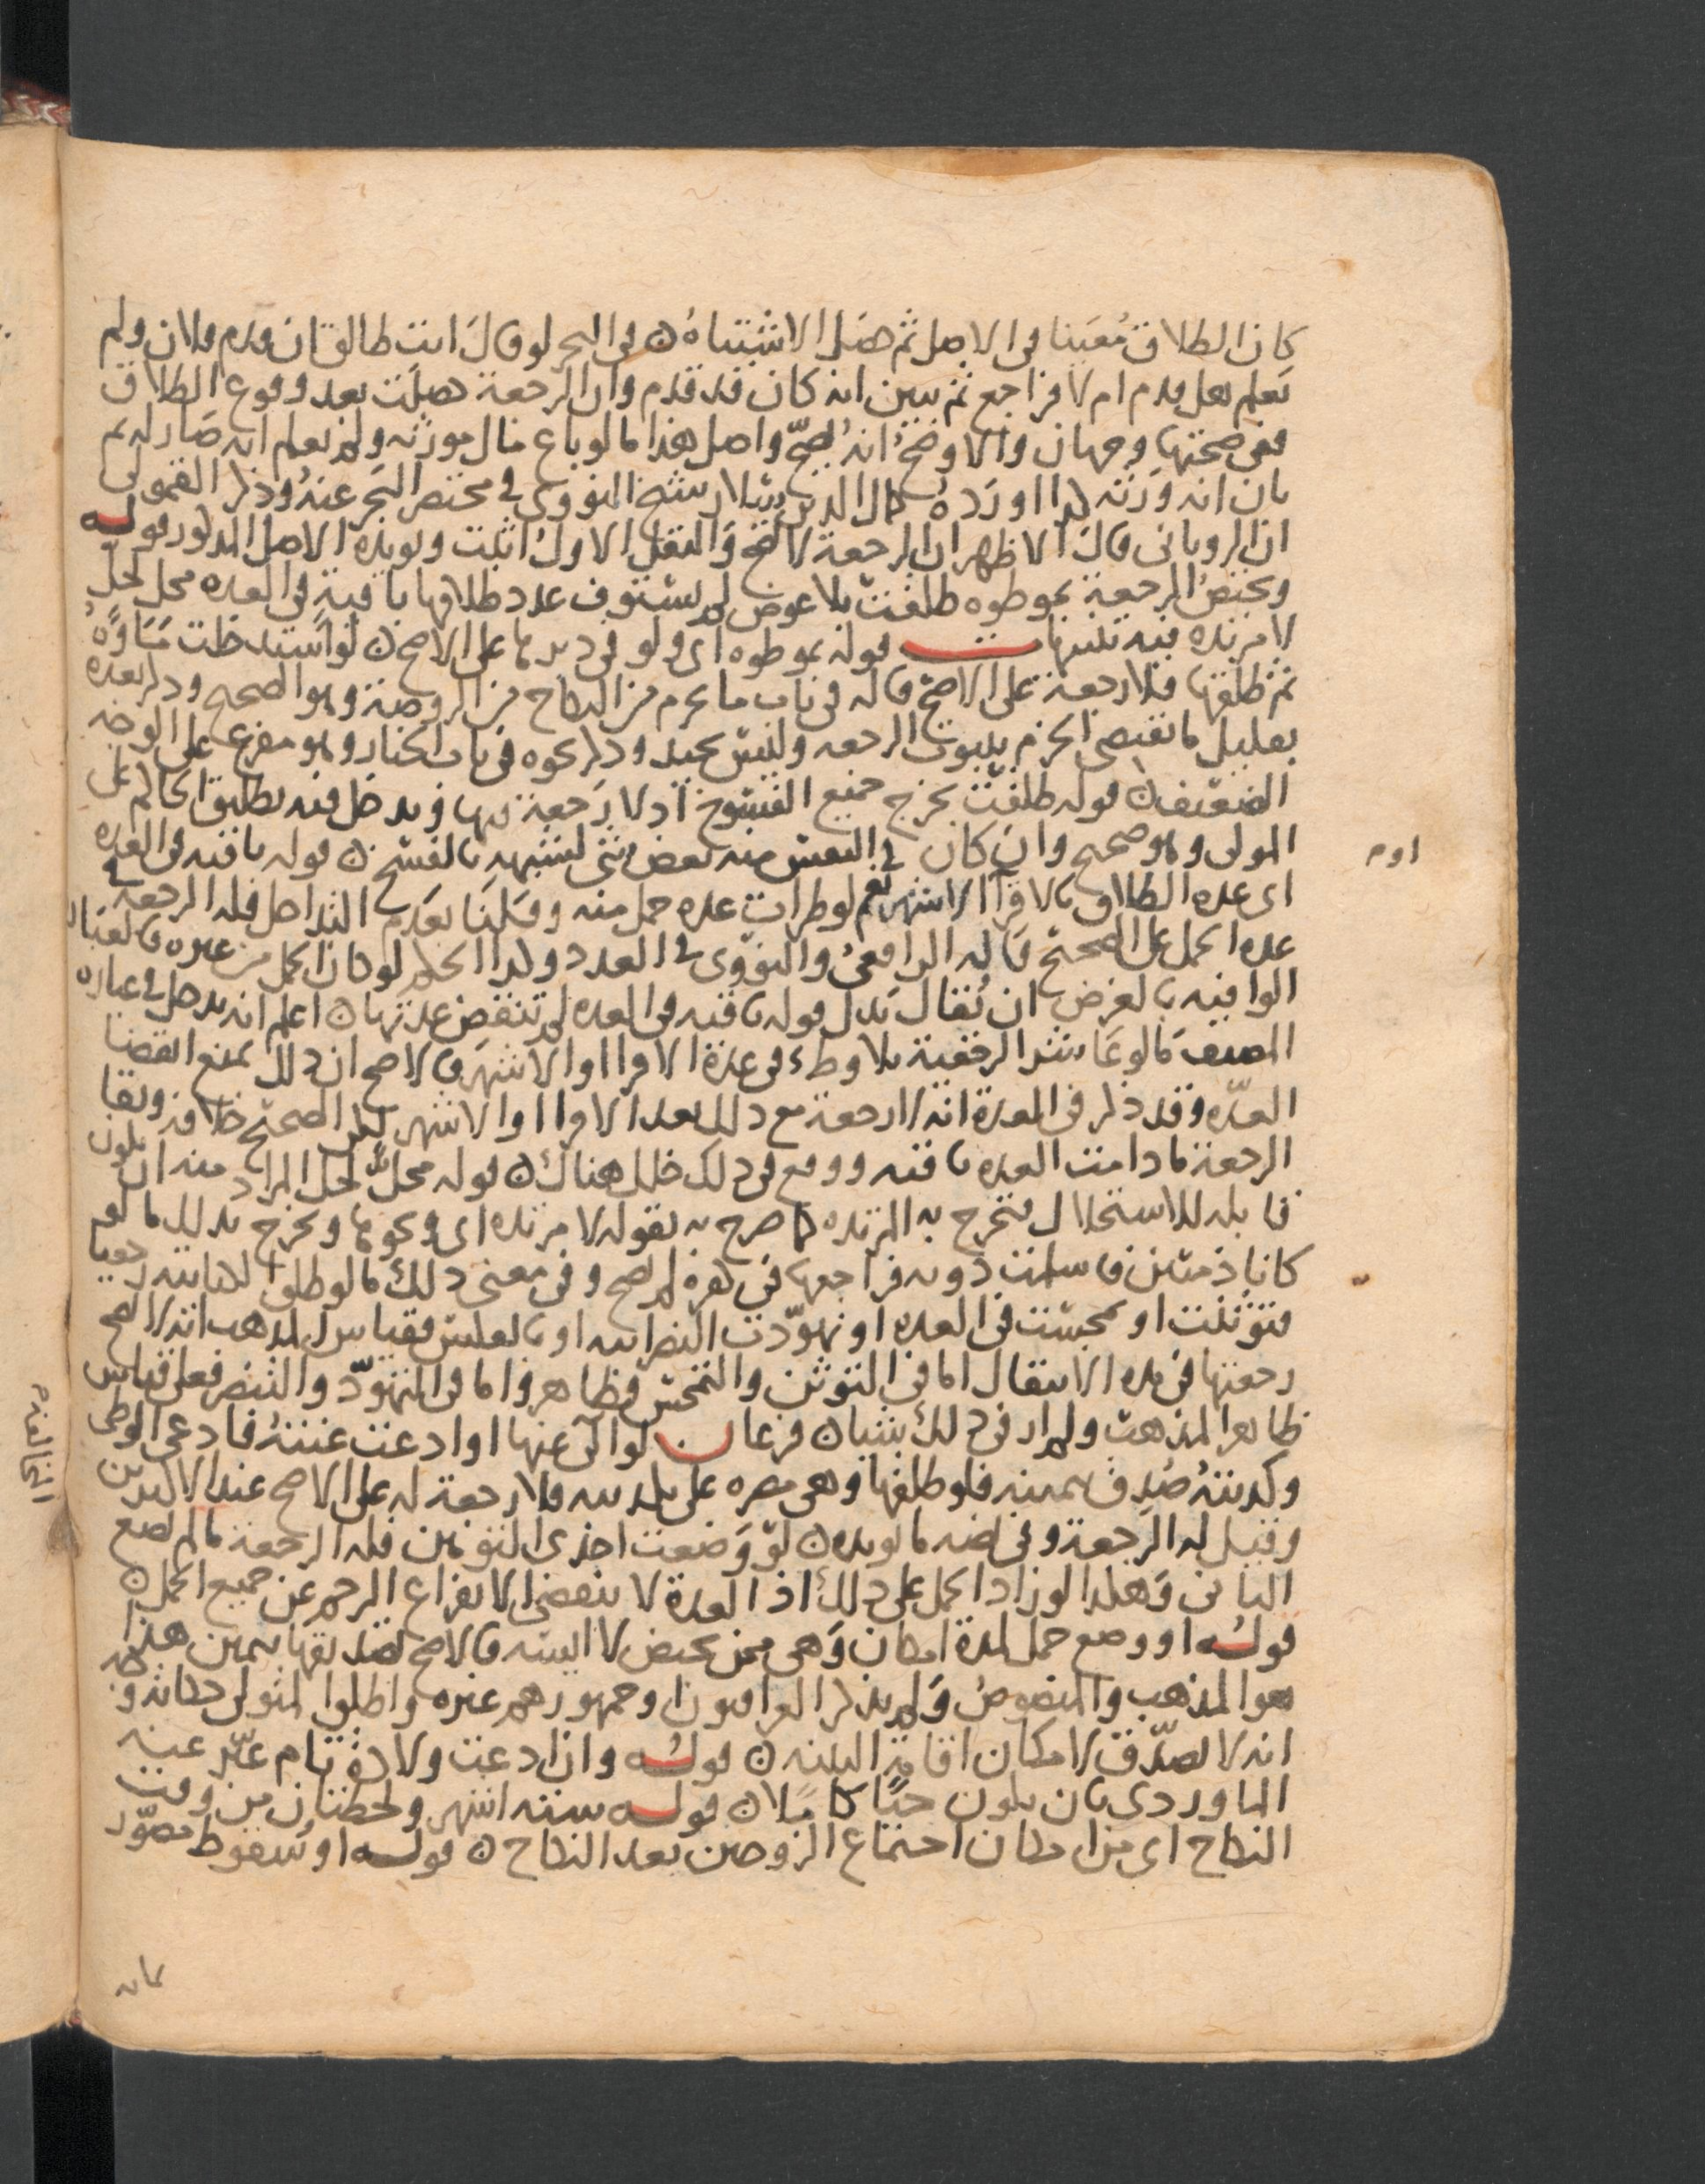 كان الطلاق معينا في الاصل ثم حصل الاشتباه ن في البحر لو قال انت طالق ان قدم فلان ولم
نعلم هل قدم ام لا فراجع ثم تبين انه كان قد قدم وان الرجعة حصلت بعد وقوع الطلاق
ففي صحتها وجهان والاوضح انه يصح واصل هذا ما لو باع مال مورثه ولم يعلم انه صار له ثم
بان انه ورثه كذا اورده كمال الدين سلار شيخ النووي في مختصر البحر عنه وذكر القمولي
ان الروياني قال الاظهر ان الرجعة لا تصح والنقل الاول اثبت ويويده الاصل المذكور قوله
وتختص الرجعة بموطوه طلقت بلا عوض لم يستوف عدد طلاقها باقية في العده محل لحل
لا مرتده قوله بموطوه اي ولو في دبرها على الاصح ن لو استدخلت ماوه
ثم طلقها فلا رجعة على الاصح قاله في باب ما يحرم من النكاح من الروضة وهو الصحيح وذكر بعده
تعليل ما يقتضي الجزم بثبوت الرجعه وليس بجيد وذكر نحوه في باب الخيار وهو مفرع على الوجه
الضعيف ن قوله طلقت يخرج جميع الفسوخ اذ لا رجعة فيها ويدخل فيه تطليق الحاكم على
المولى وهو صحيح وان كان في النفس منه بعض شي لشبهه بالفسخ ن قوله باقيه في العده
اي عده الطلاق بالاقراء الاشهر نعم لو طرات عده حمل منه وقلنا بعدم التداخل فله الرجعه في
عده الحمل على الصحيح قاله الرافعي والنووي في العدد وكذا الحكم لو كان الحمل من غيره فالعبارة
الوافيه بالغرض ان يقال بدل قوله باقيه في العده لم تنقض عدتها ن اعلم انه يدخل في عباره
المصنف ما لو عاشر الرجعية بلا وطء في عدة الاقراء او الاشهر فالاصح ان ذلك يمنع انقضا
العدة وقد ذكر في العدة انه لا رجعة مع ذلك بعد الاقراء او الاشهر لكن الصحيح خلافه وبقا
الرجعة ما دامت العده باقيه ووقع في ذلك خلل هناك ن قوله محل لحل المراد منه ان يكون
قابله للاستحلال فتخرج به المرتده كما صرح به بقوله لا مرتده اي ونحوها ويخرج بذلك ما لو
كانا ذميين فاسلمت دونه فراجعها في كفره لم يصح وفي معنى ذلك ما لو طلق الكتابيه رجعيا
فتوثنت او تمجست في العده او تهودت النصرانيه او بالعكس فقياس المذهب انه لا تصح
رجعتها في هذه الانتقال اما في التوثن والتمجس فظاهر واما في التهود والتنصر فعلى قياس
ظاهر المذهب ولم ار في ذلك شيا ن فرعان لو الى عنها او ادعت عنته فادعى الوطي
وكذبته صدق بيمينه فلو طلقها وهي مصره على تكذيبه فلا رجعة له على الاصح عند الاكثرين
وقيل له الرجعة وفي نصه ما يويده ن لو وضعت احدى التوءمين فله الرجعة ما لم تضع
الثاني وهكذا لو زاد الحمل على ذلك اذ العدة لا تنقضي الا بفراغ الرحم عن جميع الحمل ن
قوله او وضع حمل لمدة امكان وهي ممن تحيض لا اليسه فالاصح تصديقها بيمين هذا
هو المذهب والمنصوص ولم يذكر العراقيون او جمهورهم غيره واطلق المتولي حكاية وجه
انه لا تصدق لامكان اقامة البينه ن قوله وان ادعت ولادة تام عبر عنه
الماوردي بان يكون حيا كاملا ن قوله سته اشهر ولحظتان من وقت
النكاح اي من امكان اجتماع الزوجين بعد النكاح ن قوله او سقوط مصور